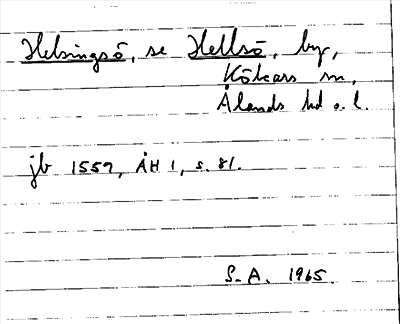 Helsingsö, se Hellsö, by,
Kökars sn,
Ålands hd o. l.
jb 1557, ÅH 1, s. 81.
S. A. 1965.